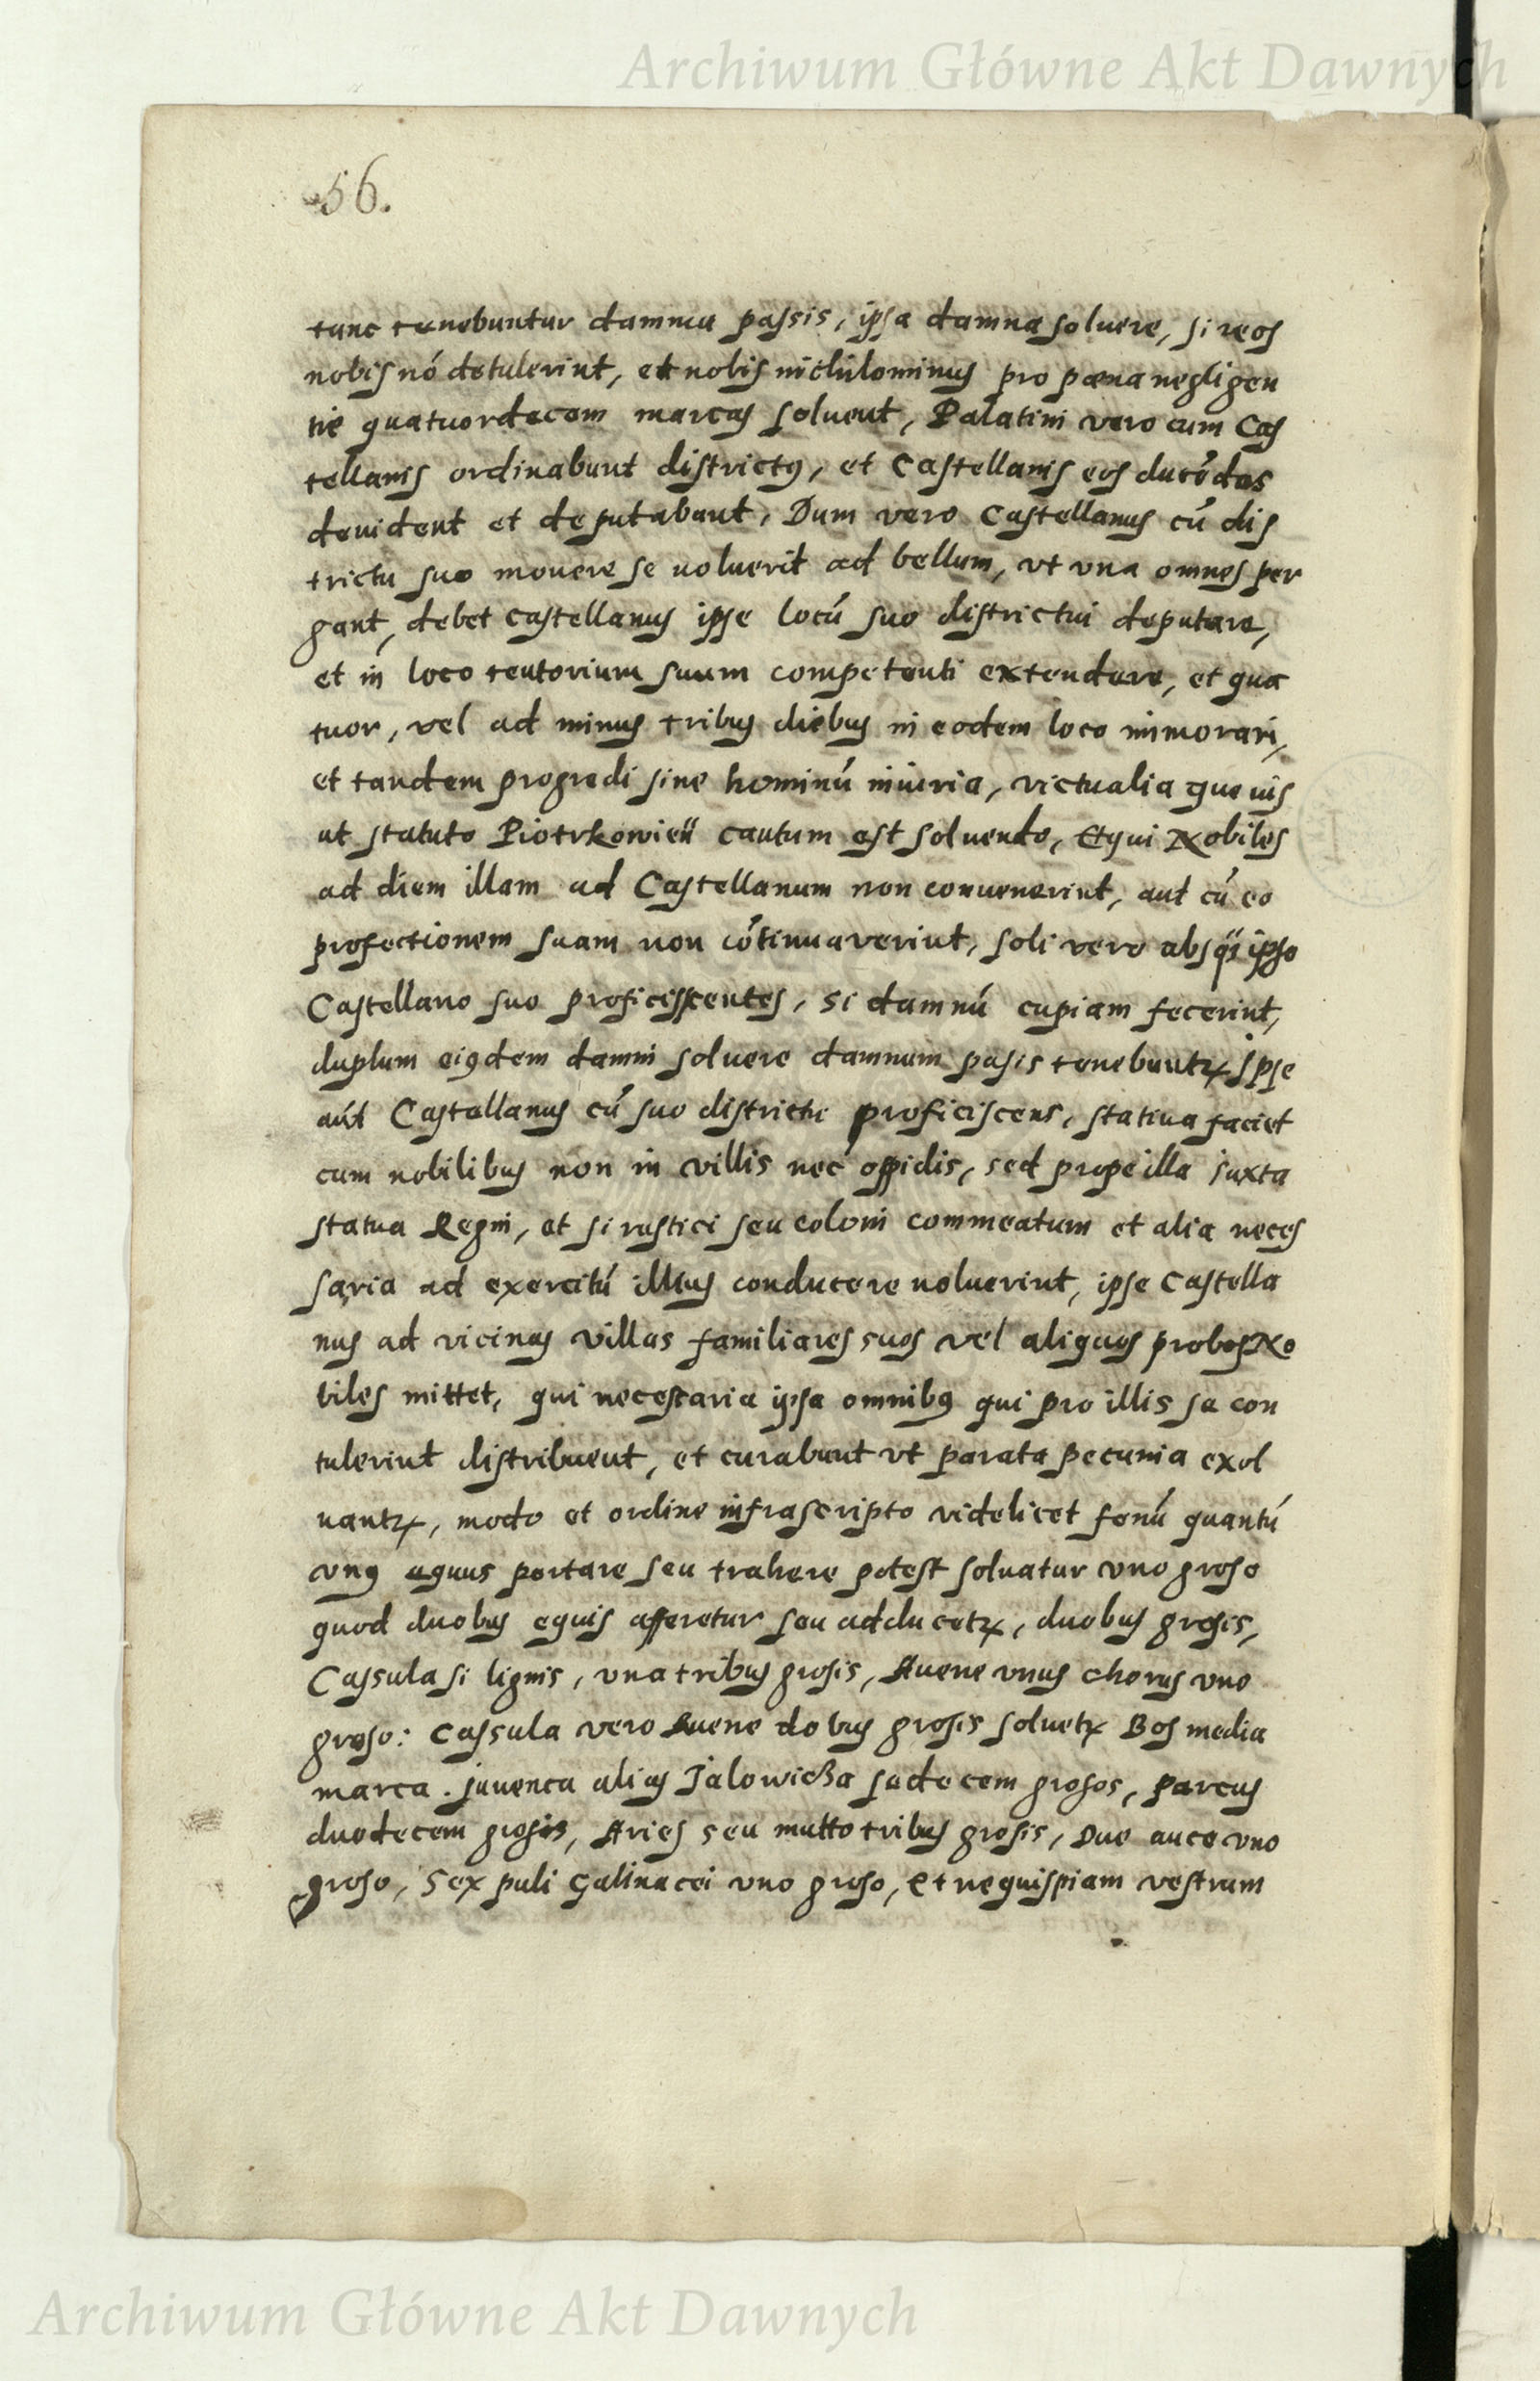 Archiwum Główne Akt Dawnych
56.
tunc tenebuntur damna passis, ipsa damna soluere, si reos
nobis nó detulerint, et nobis nichilominus pro pœna negligen
tie quatuordecem marcas soluent, Palatini vero cum Cas
tellanis ordinabunt districtus, et Castellanis eos ducēdos
deuident et deputabunt, Dum vero Castellanus cū dis
trictu suo mouere se uoluerit ad bellum, vt vna omnes per
gant, debet castellanus ipse locū suo districtui deputare,
et in loco tentorium suum competenti extendere, et qua
tuor, vel ad minus tribus diebus in eodem loco immorari,
et tandem progredi sine hominū iniuria, victualia que uis
ut statuto Piotrkowień cautum est soluendo, Et qui Nobiles
ad diem illam ad Castellanum non conuenerint, aut cū eo
profectionem suam non cōtinuaverint, soli vero absq; ipso
Castellano suo proficisscentes, si damnū cupiam fecerint,
duplum eiusdem damni soluere damnum pasis tenebuntr Ipse
aūt Castellanus cū suo districtu proficiscens, statiua faciet
cum nobilibus non in villis nec oppidis, sed prope illa iuxta
statua Regni, et si rustici seu coloni commeatum et alia neces
saria ad exercitū illius conducere noluerint, ipse Castella
nus ad vicinas villas familiares suos vel aliquos probos No
biles mittet, qui necessaria ipsa omnibus qui pro illis se con
tulerint distribuent, et curabunt vt parata pecunia exol
uantr, modo et ordine infrascripto videlicet fenū quantū
cunq equus portare seu trahere potest soluatur vno groso
quod duobus equis afferetur seu adducetr, duobus grosis,
Cassula si lignis, vna tribus grosis, Auene vnus chorus vno
groso: Cassula vero Auene dobus grosis soluetr Bos media
marca. Juuenca alias Jalowicza sedecem grosos, parcus
duodecem grosis, Aries seu mutto tribus grosis, Due auce vno
groso, Sex puli galinacei vno groso, Et ne quispiam vestrum
Archiwum Główne Akt Dawnych